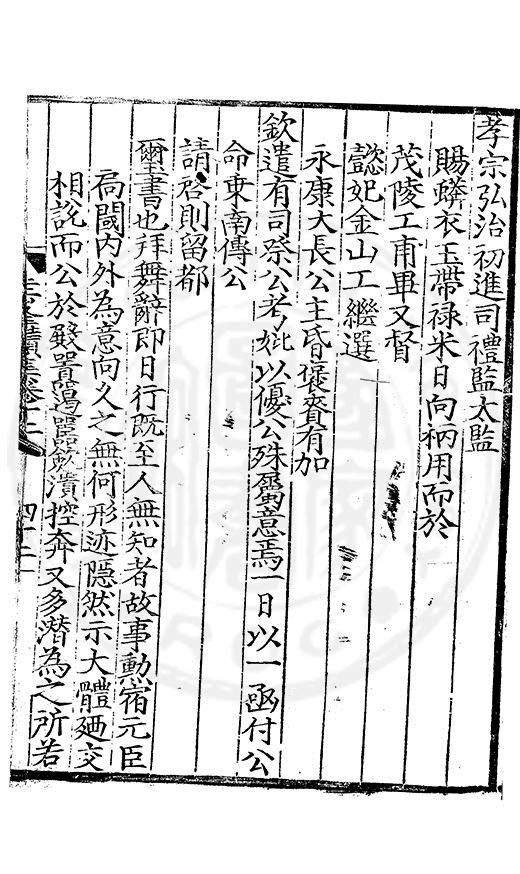 孝宗弘治初進司禮監太監
賜蟒衣玉帶祿米日向柄用而於
茂陵工甫畢又督
懿妃金山工繼選
永康大長公主昏褒賚有加
欽遣有司祭公考妣以優公殊寓意焉一日以一函付公
命東南傳公
請啓則留都
璽書也拜舞辭即日行既至人無知者故事勳宿元臣
局閫內外為意向久之無何形迹隱然示大體廼交
相說而公於
潰控奔又多潛為之所若